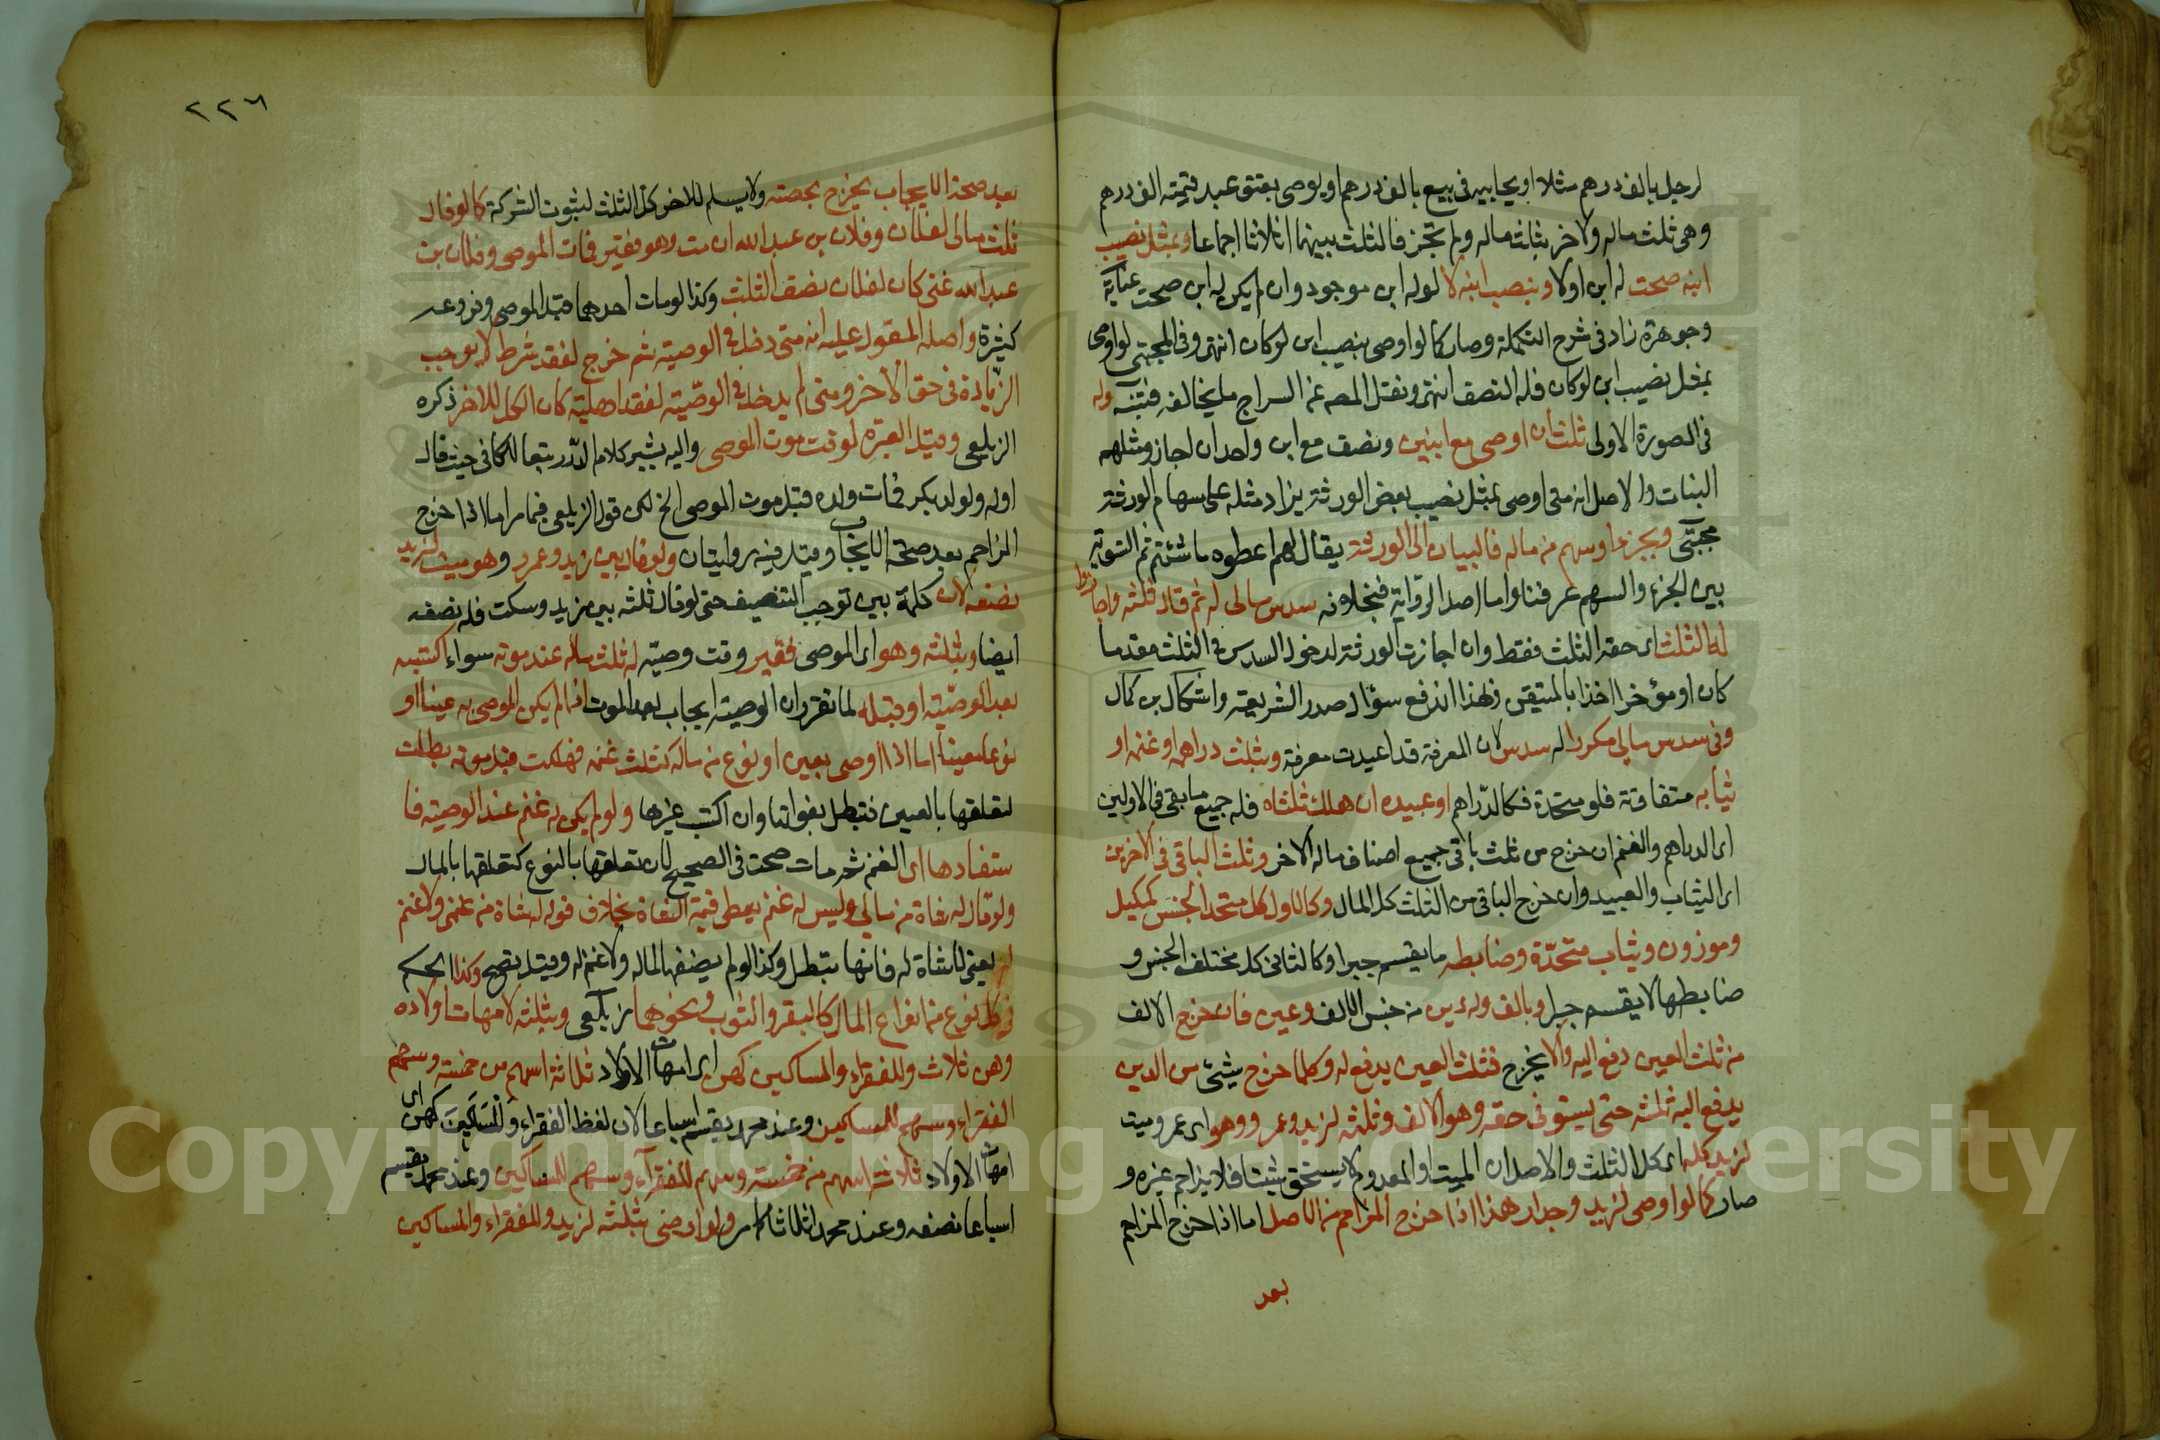 لرجل بالف درهم مثلا او يحابيه في بيع بالف درهم او يوصي بعتق عبد قيمته الف درهم
وهي ثلث ماله ولاخر بثلث ماله ولم تجز فالثلث بينهما اثلاثا اجماعا وبمثل نصيب
ابنه صحت له ابن اولا وبنصيب ابنه لا لو له ابن موجود وان لم يكن له ابن صحت عناية
وجوهرة زاد في شرح التكملة وصار كما لو اوصى بنصيب ابن لو كان انتهى وفي المجتبى لو اوصى
بمثل نصيب ابن لو كان فله النصف انتهى ونقل المص عن السراج ما يخالفه فتنبه وله
في الصورة الاولى ثلث ان اوصى مع ابنين ونصف مع ابن واحد ان اجاز ومثلهم
البنات والاصل انه متى اوصى بمثل نصيب بعض الورثة يزاد مثله على سهام الورثة
مجتبى وبجزء او سهم من ماله فالبيان الى الورثة يقال لهم اعطوه ما شئتم ثم التسوية
بين الجزء والسهم عرفنا واما اصل الرواية فبخلافه سدس مالي له ثم قال ثلثه واجازوا
له الثلث اي حقه الثلث فقط وان اجازت الورثة لدخول السدس في الثلث مقدما
كان او مؤخرا اخذا بالمتيقن فبهذا اندفع سؤال صدر الشريعة واشكال بن كمال
وفي سدس مالي مكررا له سدس لان المعرفة قد اعيدت معرفة وبثلث دراهمه او غنمه او
ثيابه متفاوتة فلو متحدة فكالدراهم او عبيده ان هلك ثلثاه فله جميع ما بقي في الاولين
اي الدراهم والغنم ان خرج من ثلث باقي جميع اصناف ماله الاخر وثلث الباقي في الاخرين
اي الثياب والعبيد وان خرج الباقي من الثلث كل المال وكالاول كل متحد الجنس كمكيل
وموزون وثياب متحدة وضابطه ما يقسم جبرا وكالثاني كل مختلف الجنس و
ضابطها لا يقسم جبرا وبالف وله دين من جنس الالف وعين فان خرج الالف
من ثلث العين دفع اليه والا يخرج فثلث العين يدفع له وكلما خرج شيئ من الدين
يدفع اليه ثلثه حتى يستوفي حقه وهو الالف وبثلثه لزيد وعمرو وهو اي عمرو ميت
لزيد كله اي كل الثلث والاصل ان الميت او المعدوم لا يستحق شيئا فلا يزاحم غيره و
صار كما لو اوصى لزيد وجدار هذا اذا خرج المزاحم من الاصل اما اذا خرج المزاحم
بعد
٢٢٦
بعد صحة الايجاب يخرج بحصته ولا يسلم للاخر كل الثلث لثبوت الشركة كما لو قال
ثلث مالي لفلان وفلان بن عبد الله ان مت وهو فقير فمات الموصي وفلان بن
عبد الله غني كان لفلان نصف الثلث وكذا لو مات احدهما قبل الموصي وفروعه
كثيرة واصله المعول عليه انه متى دخل في الوصية ثم خرج لفقد شرط لا يوجب
الزيادة في حق الاخر ومتى لم يدخل في الوصية لفقد اهليته كان الكل للاخر ذكره
الزيلعي وقيل العبرة لوقت موت الموصي واليه يشير كلام الدرر تبعا للكافي حيث قال
او له ولولد بكر فمات ولده قبل موت الموصي الخ لكن قول الزيلعي فيما مر اما اذا خرج
المزاحم بعد صحة الايجاب وقيل فيه روايتان ولو قال بين زيد وعمرو وهو ميت لزيد
نصفه لان كلمة بين توجب التنصيف حتى لو قال ثلثه بين زيد وسكت فله نصفه
ايضا وبثلثه وهو اي الموصي فقير وقت وصيته له ثلث ماله عند موته سواء اكتسبه
بعد الوصية او قبله لما تقرر ان الوصية ايجاب بعد الموت اذا لم يكن الموصى به عينا او
نوعا معينا اما اذا اوصى بعين او نوع من ماله كثلث غنمه فهلكت قبل موته بطلت
لتعلقها بالعين فتبطل بفواتها وان اكتسب غيرها ولو لم يكن له غنم عند الوصية فا
ستفادها اي الغنم ثم مات صحت في الصحيح لان تعلقها بالنوع كتعلقها بالمال
ولو قال له شاة من مالي وليس له غنم يعطى قيمة الشاة بخلاف قوله له شاة من غنمي ولا غنم
له يعني لا شاة له فانها تبطل وكذا لو لم يضفها لماله ولا غنم له وقيل تصح وكذا الحكم
في كل نوع من انواع المال كالبقر والثوب ونحوهما زيلعي وبثلثه لامهات اولاده
وهن ثلاث وللفقراء والمساكين لهن اي امهات الاولاد ثلاثة اسهم من خمسة وسهم
للفقراء وسهم للمساكين وعند محمد يقسم اسباعا لان لفظ الفقراء والمساكين لهن اي
امهات الاولاد ثلاثة اسهم من خمسة وسهم للفقرآء وسهم للمساكين وعند محمد يقسم
اسباعا نصفه وعند محمد اثلاثا كما مر ولو اوصى بثلثه لزيد وللفقراء والمساكين
Copyright © King Saud University